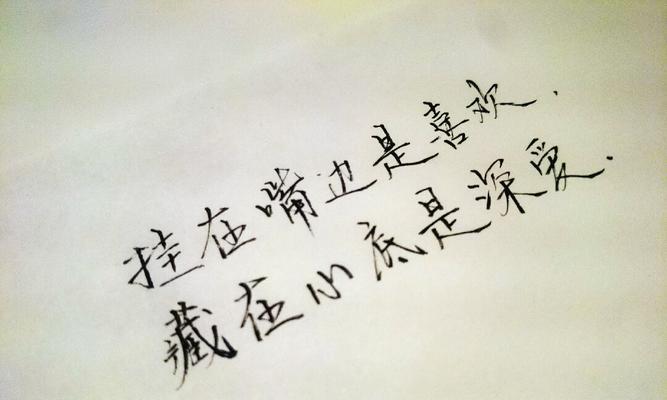 挂在嘴边是喜欢.
藏在心底是深爱.